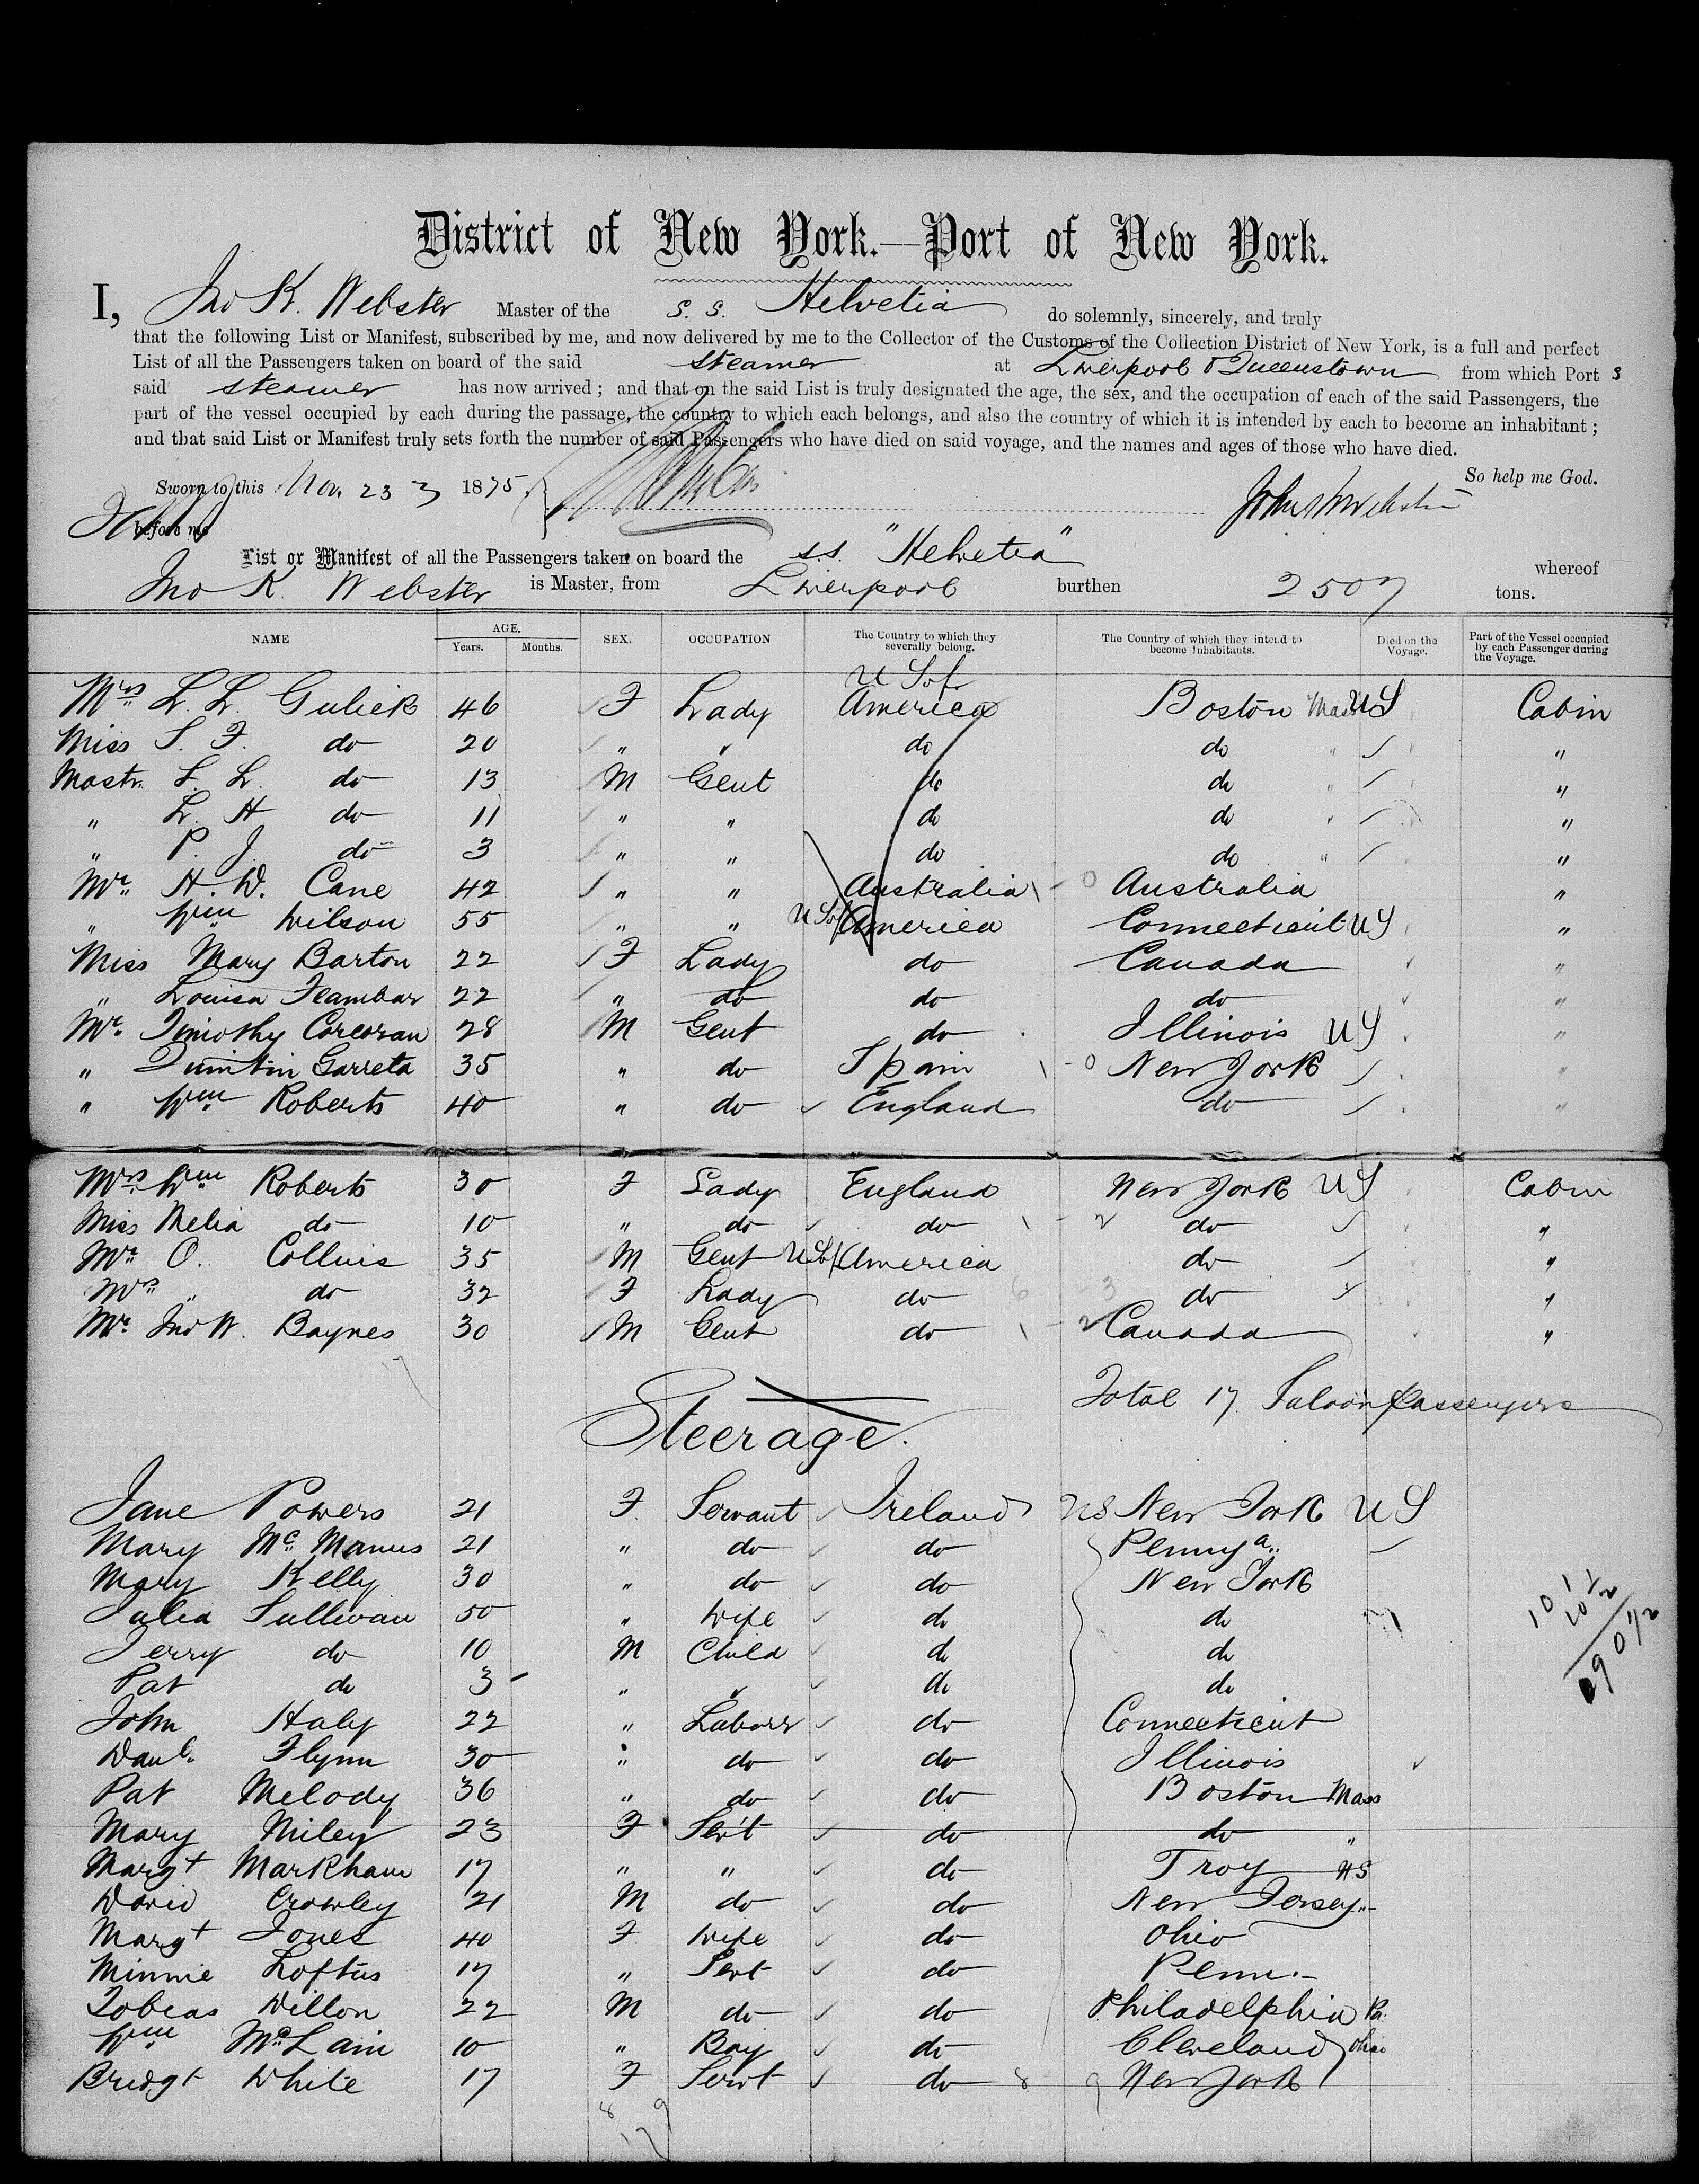 District of New York.—Port of New York.
I, Jno K. Webster Master of the S. S. Helvetia do solemnly, sincerely, and truly
that the following List or Manifest, subscribed by me, and now delivered by me to the Collector of the Customs of the Collection District of New York, is a full and perfect
List of all the Passengers taken on board of the said steamer at Liverpool & Queenstown from which Port s
said steamer has now arrived; and that on the said List is truly designated the age, the sex, and the occupation of each of the said Passengers, the
part of the vessel occupied by each during the passage, the country to which each belongs, and also the country of which it is intended by each to become an inhabitant;
and that said List or Manifest truly sets forth the number of said Passengers who have died on said voyage, and the names and ages of those who have died.
So help me God.
Sworn to this Nov. 23 1875.
before me
List or Manifest of all the Passengers taken on board the s.s. "Helvetia" whereof
Jno K. Webster is Master, from Liverpool burthen 2507 tons.
NAME AGE. Years. Months. SEX. OCCUPATION The Country to which they severally belong. The Country of which they intend to become Inhabitants. Died on the Voyage. Part of the Vessel occupied by each Passenger during the Voyage.
Mrs L. L. Gulick 46 F Lady U S of America Boston Mass US Cabin
Miss S. F. do 20 " " do do " "
Mastr. F. L. do 13 M Gent do do " "
" L. H do 11 " " do do " "
" P. J. do 3 " " do do " "
Mr. H. W. Cane 42 " " Australia 1 - 0 Australia "
" Wm Wilson 55 " " U S of America Connecticut US "
Miss Mary Barton 22 F Lady do Canada "
" Louisa Flambar 22 " do do do "
Mr. Timothy Corcoran 28 M Gent do Illinois US "
" Quintin Garreta 35 " do Spain 1 - 0 New York "
" Wm Roberts 40 " do England do "
Mrs Wm Roberts 30 F Lady England New York US Cabin
Miss Melia do 10 " do do 1 - 2 do "
Mr. O. Collins 35 M Gent U S of America do "
Mrs " do 32 F Lady do 6 - 3 do "
Mr. Jno W. Baynes 30 M Gent do 1 - 2 Canada "
17
Total 17 Saloon Passengers
Steerage.
Jane Powers 21 F. Servant Ireland US New York US
Mary McManus 21 " do do Pennya.
Mary Kelly 30 " do do New York
Julia Sullivan 50 " Wife do do
Jerry do 10 M Child do do
Pat do 3 " " do do
John Haly 22 " Laborr do Connecticut
Danl. Flynn 30 " do do Illinois
Pat Melody 36 " do do Boston Mass
Mary Miley 23 F Serv't do do "
Margt Markham 17 " " do Troy US
David Crowley 21 M do do New Jersey
Margt Jones 40 F. Wife do Ohio
Minnie Loftus 17 " Servt do Penn.
Tobias Dillon 22 M do do Philadelphia Pa.
Wm McLain 10 " Boy do Cleveland Ohio
Bridgt White 17 F Servt do 8 9 New York
8 9
17